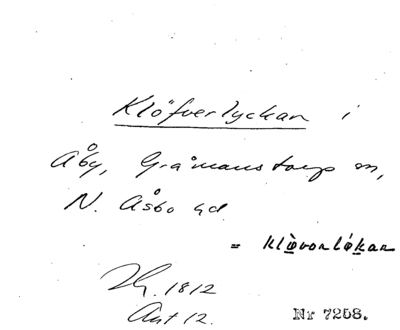 Klöfverlyckan i
Åby, Gråmanstorp sn,
N. Åsbo hd
= klòvorlókar
Zh. 1812
Akt 12.
Nr 7258.